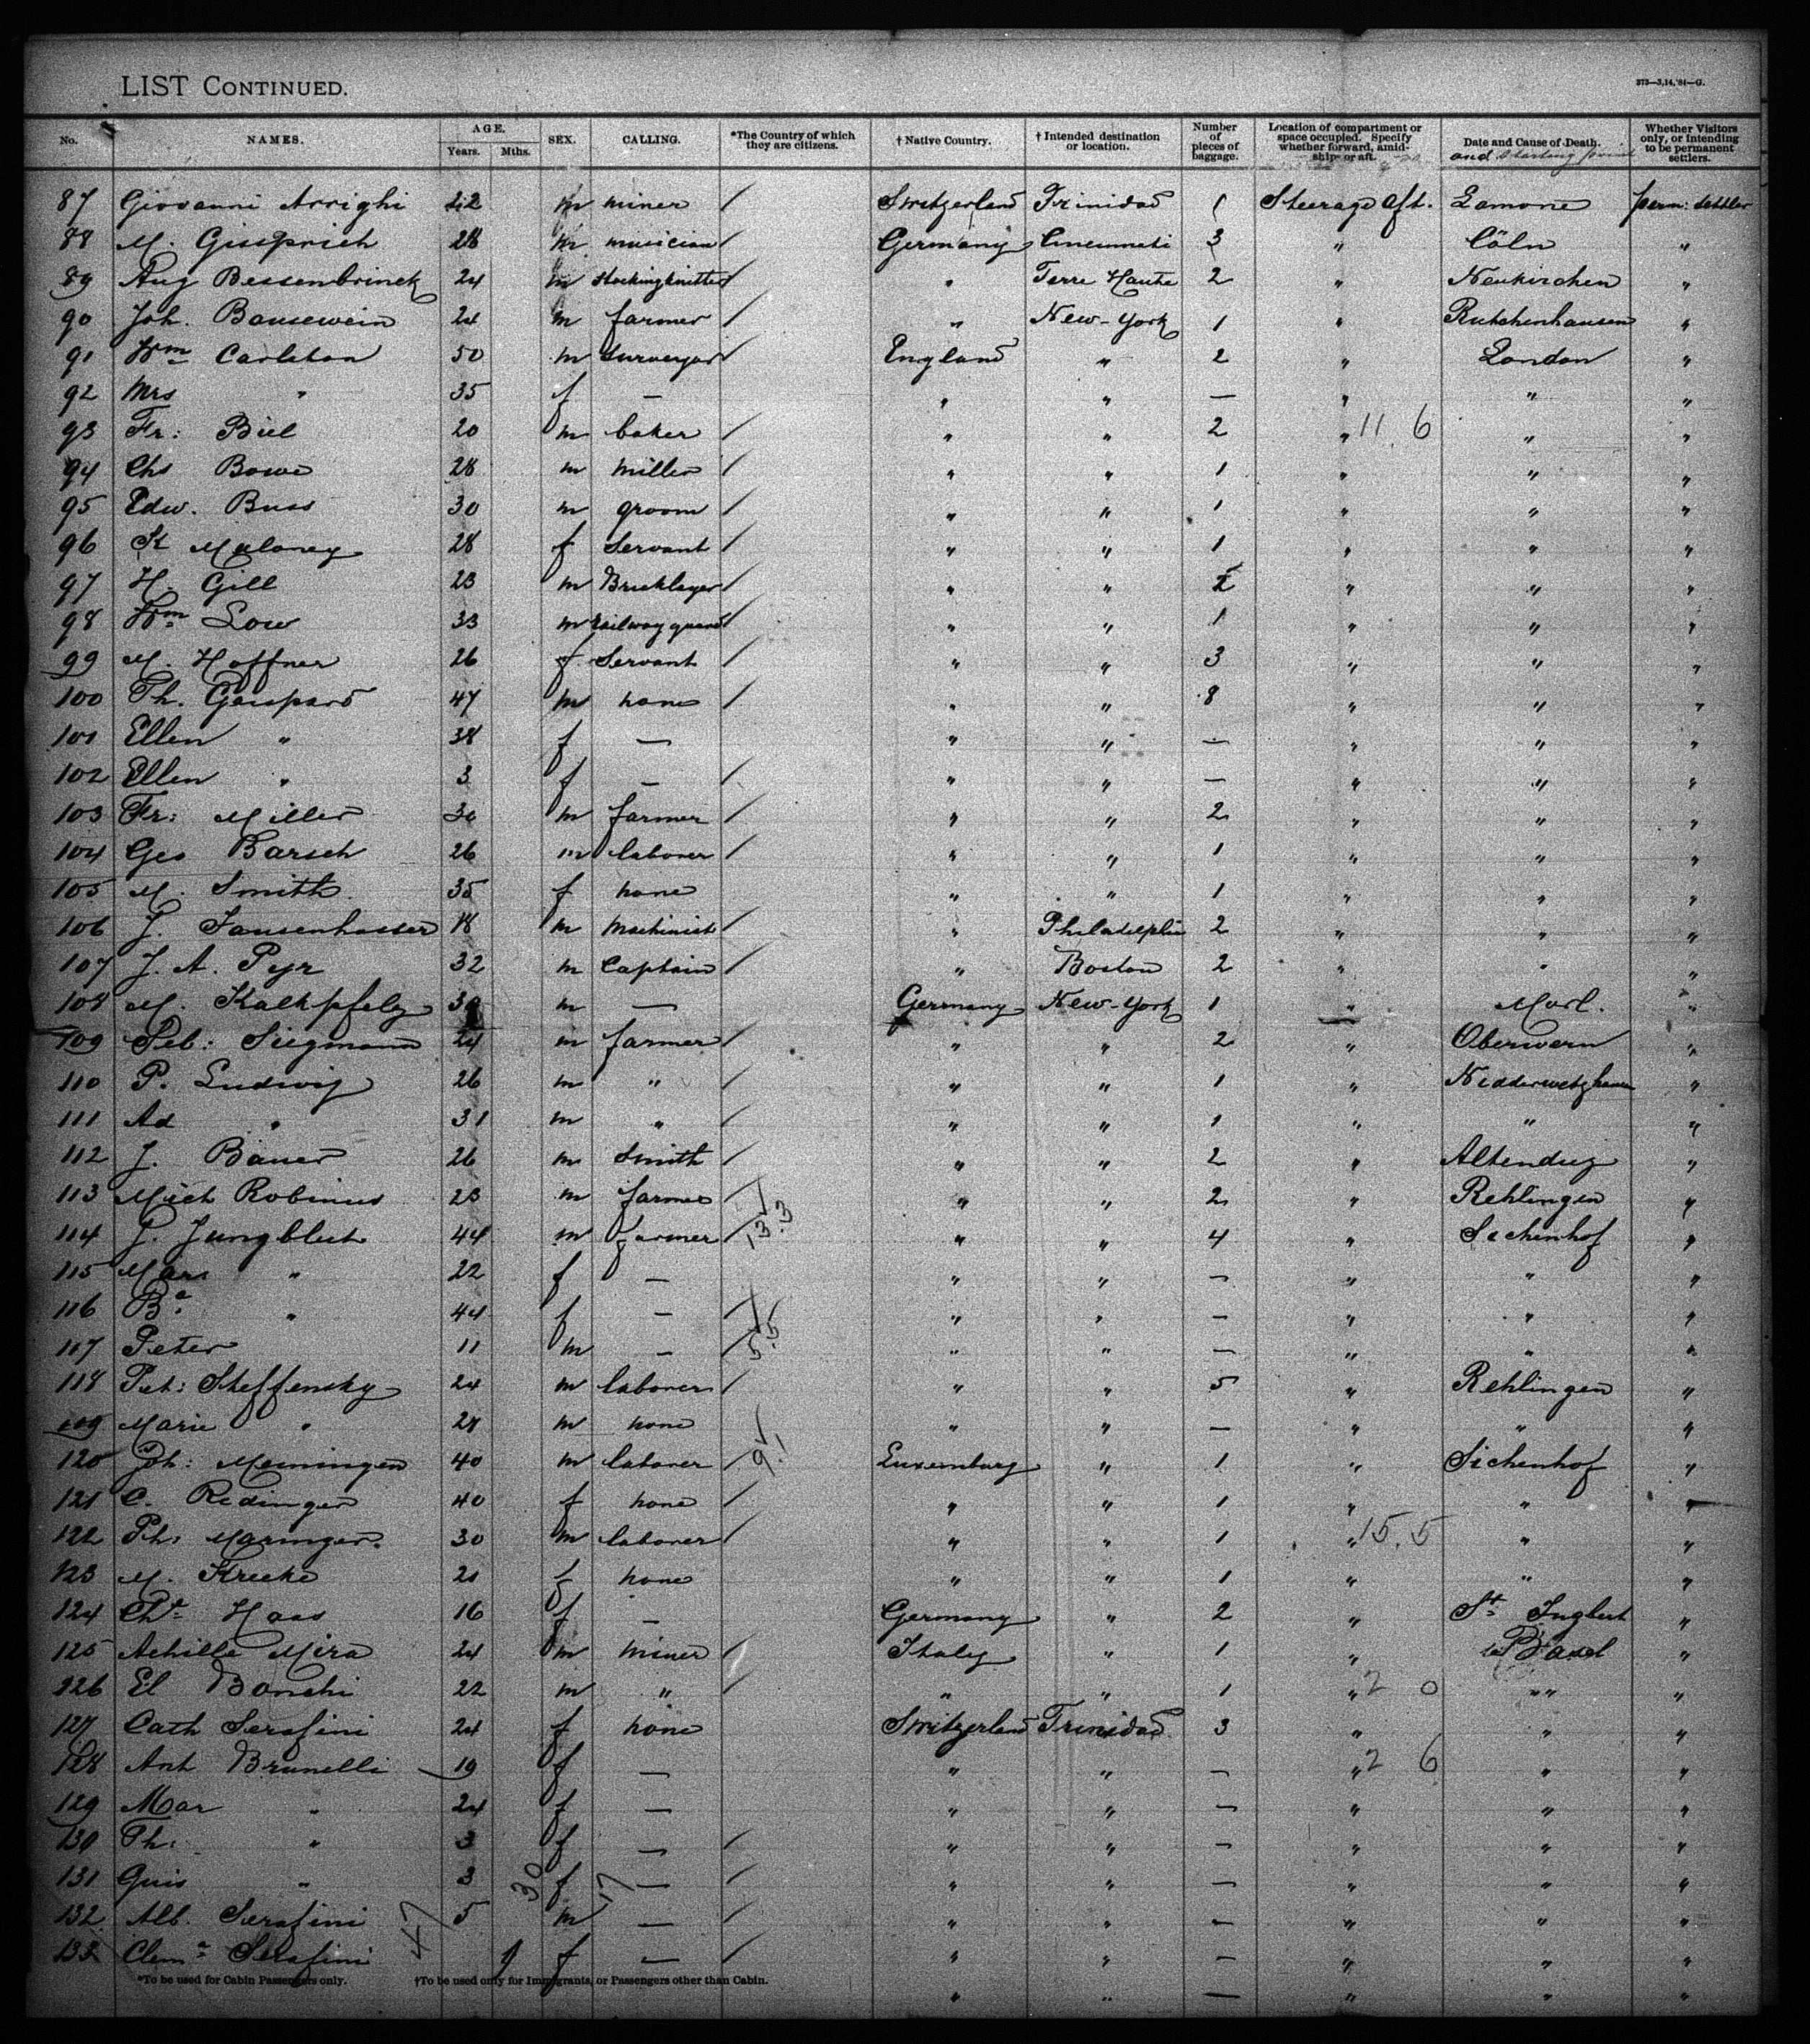 LIST CONTINUED.
373—3,14,'84—G.
No. NAMES. AGE. Years. Mths. SEX. CALLING. *The Country of which they are citizens. † Native Country. † Intended destination or location. Number of pieces of baggage. Location of compartment or space occupied. Specify whether forward, amidship or aft. Date and Cause of Death. and starting point Whether Visitors only, or intending to be permanent settlers.
87 Giovanni Arrighi 22 m miner / Switzerland Trinidad 1 Steerage Aft. Lamone perm: settler
88 M. 28 m musician / Germany Cincinnati 3 " Cöln "
89 Aug Bessenbrinck 24 m stockingknitter / " Terre Haute 2 " Neukirchen "
90 Joh. Bausewein 24 m farmer / " New-York 1 " "
91 Wm Carleton 50 m surveyor / England " 2 " London "
92 Mrs " 35 f — " " — " " "
93 Fr: Biel 20 m baker / " " 2 " 11.6 " "
94 Chs Bowe 28 m miller / " " 1 " " "
95 Edw. Buss 30 m groom / " " 1 " " "
96 K Maloney 28 f Servant / " " 1 " " "
97 H. Gill 23 m Bricklayer / " " 2 " " "
98 Wm Low 33 m railway guard / " " 1 " " "
99 M. Hoffner 26 f Servant / " " 3 " " "
100 Th. Gaspard 47 m none / " " 8 " " "
101 Ellen " 38 f — " " — " " "
102 Ellen " 3 f — / " " — " " "
103 Fr: Miller 30 m farmer / " " 2 " " "
104 Geo Barsch 26 m laborer / " " 1 " " "
105 M. Smith 35 f none " " 1 " " "
106 J. 18 m Machinist / " Philadelphia 2 " " "
107 J. A. Pyr 32 m Captain / " Boston 2 " " "
108 M. Kalkpfelz m — Germany New-York 1 " Morl. "
109 Seb: Siegmann 24 m farmer / " " 2 " Oberwern "
110 P. Ludwig 26 m " / " " 1 " "
111 Ad " 31 m " / " " 1 " " "
112 J. Bauer 26 m Smith / " " 2 " "
113 Mich Robinius 23 m farmer / " " 2 " Rehlingen "
114 J. Jungblut 44 m farmer / 13.3 " " 4 " Sichenhof "
115 Mar: " 22 f — " " — " " "
116 Ba " 44 f — / " " — " " "
117 Peter 11 m — / 5.5 " " — " " "
118 Pet: Steffensky 24 m laborer / " " 5 " Rehlingen "
119 Marie " 28 m none " " — " " "
120 Joh: Meiningen 40 m laborer / 9.1 Luxemburg " 1 " Sichenhof "
121 C. Redinger 40 f none / " " 1 " " "
122 Ph: Maringer 30 m laborer / " " 1 " 15.5 " "
123 M. Kreeke 21 f none " " 1 " " "
124 Cht Haas 16 f — Germany " 2 " St Ingbert "
125 Achille Mira 24 m miner / Italy " 1 " Basel "
126 El Bonchi 22 m " / " " 1 " 2 0 " "
127 Cath Serafini 24 f none Switzerland Trinidad 3 " " "
128 Ant Brunelli 19 f — " " — " 2 6 " "
129 Mar " 24 f — " " — " " "
130 Ph: " 3 f — / " " — " " "
131 Guis " 3 f — / " " — " " "
132 Alb. Serafini 5 m — / " " — " " "
133 Clema Serafini 1 f — / " " — " " "
47 30 17
*To be used for Cabin Passengers only. †To be used only for Immigrants, or Passengers other than Cabin.
" " — " " "